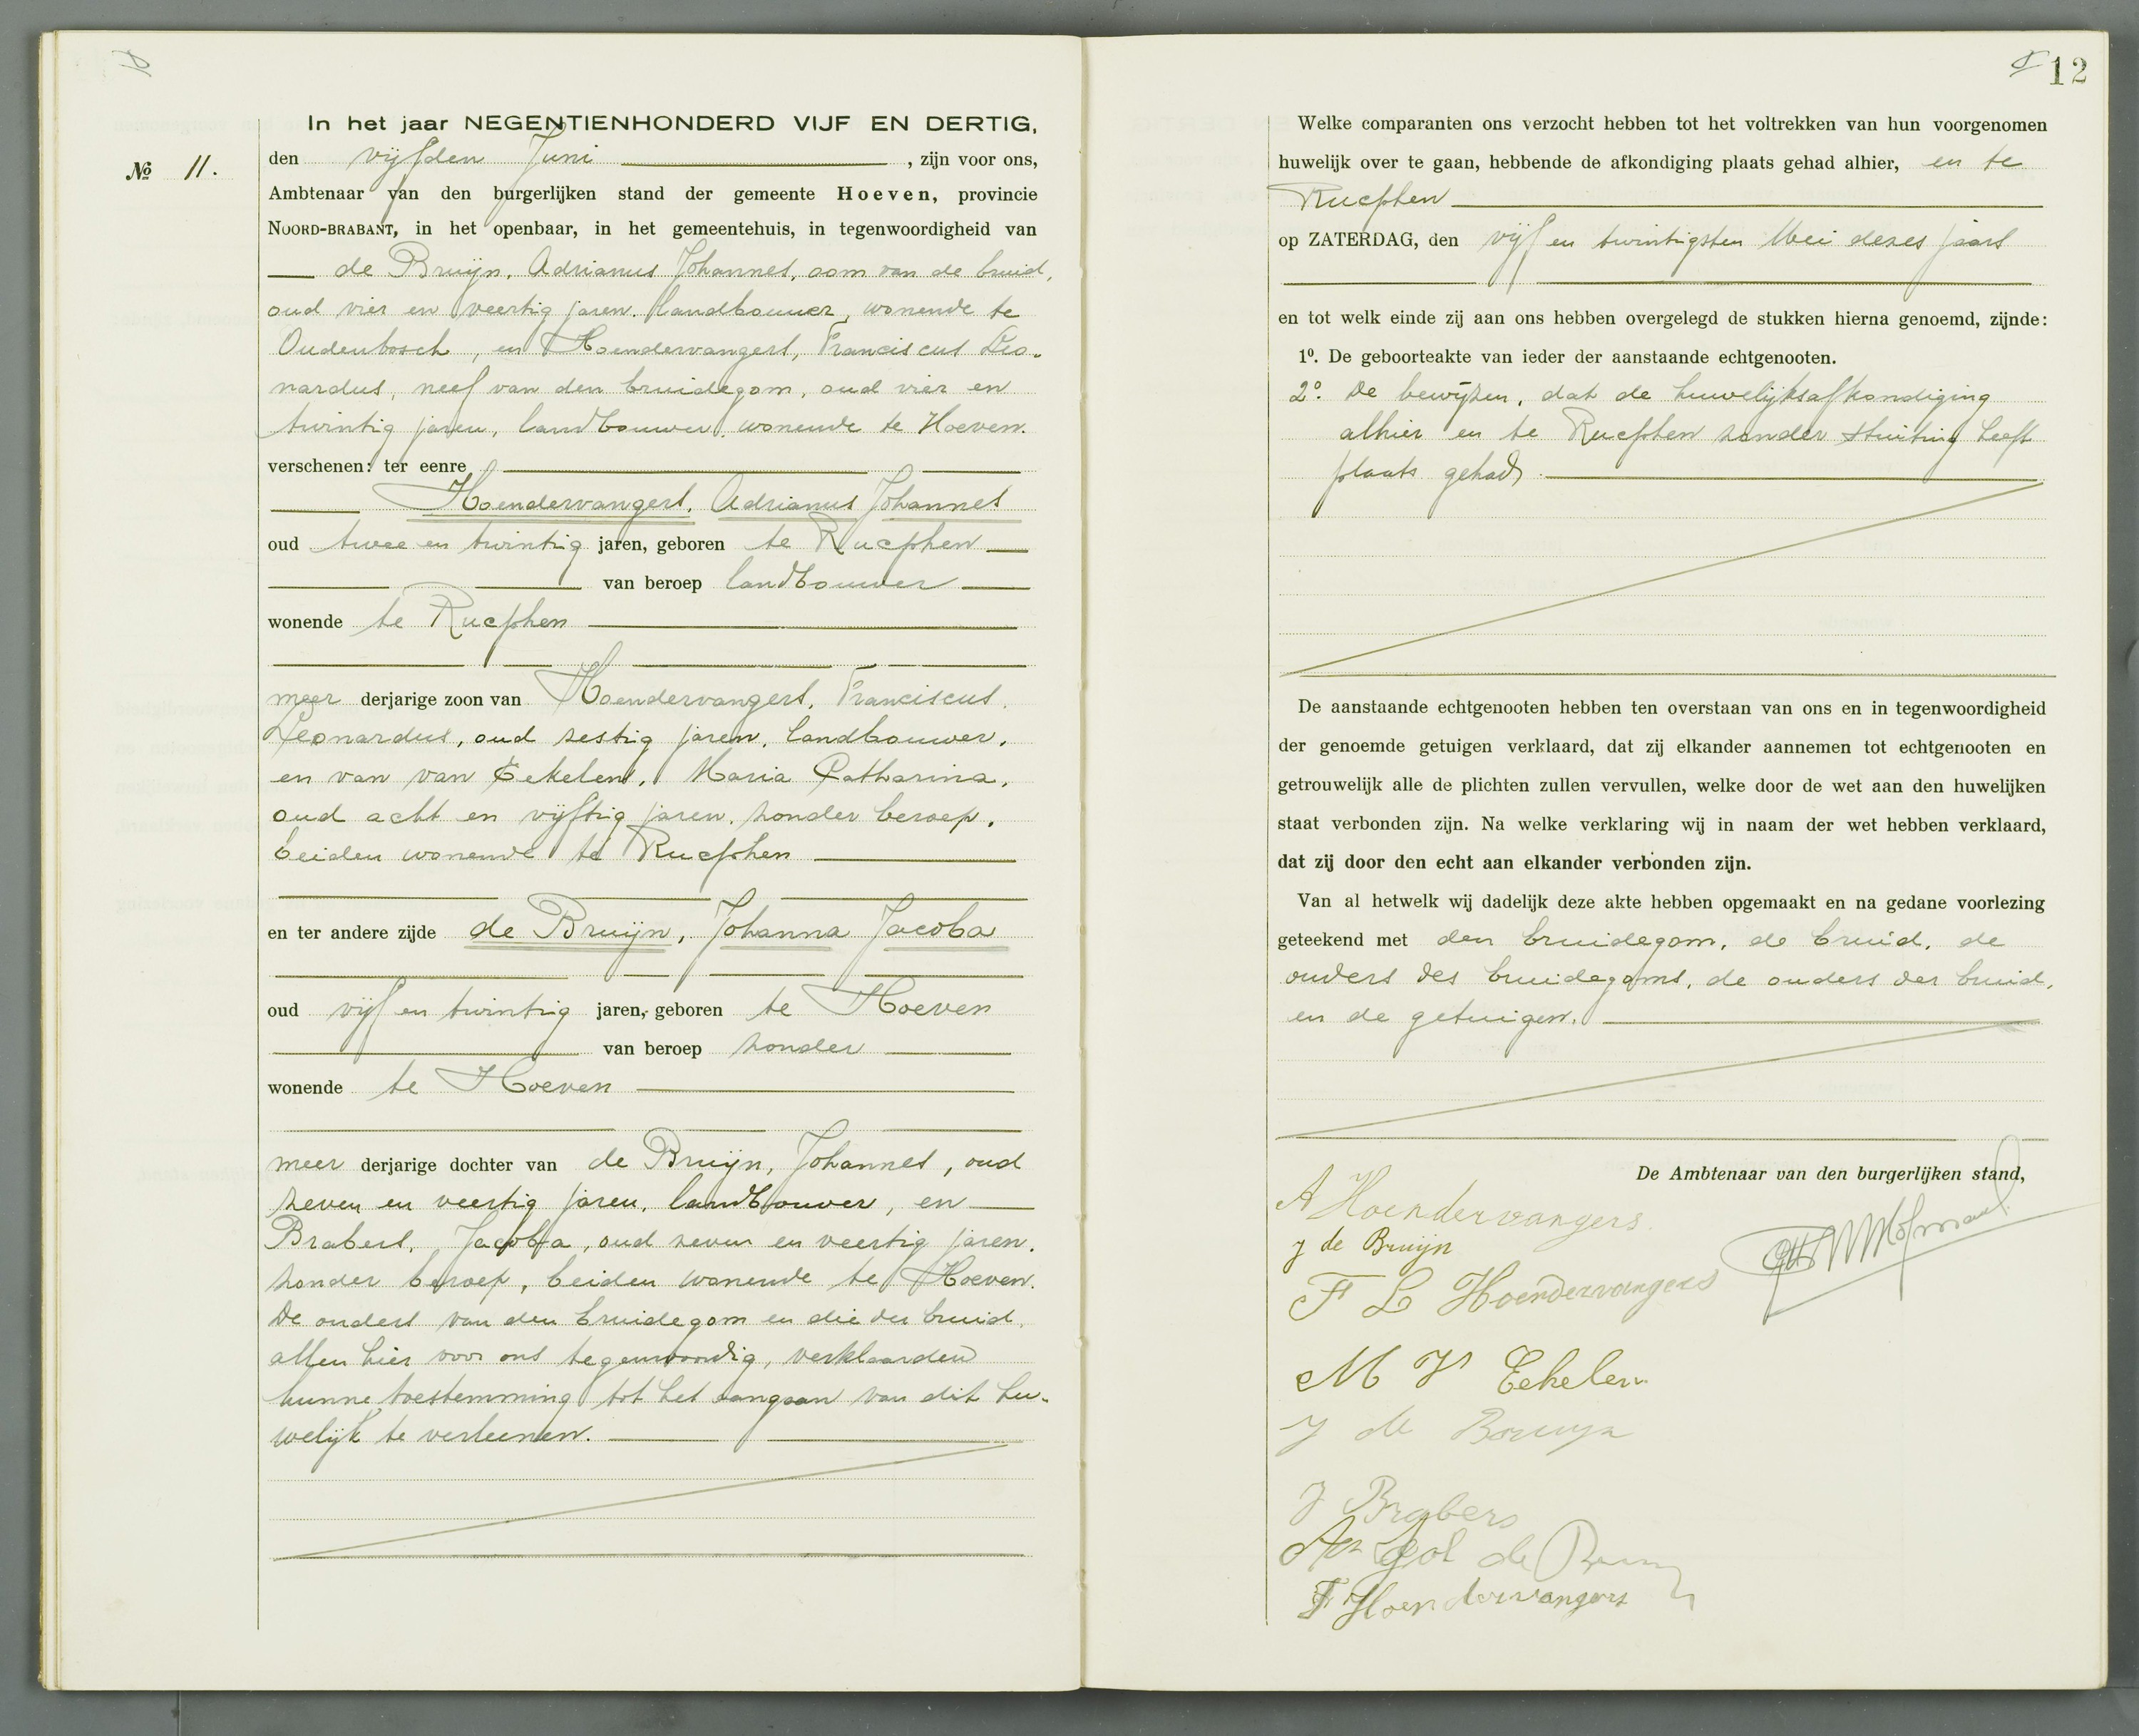 In het jaar NEGENTIENHONDERD VIJF EN DERTIG,
No 11.
den vijfden Juni , zijn voor ons,
Ambtenaar van den burgerlijken stand der gemeente Hoeven, provincie
NOORD-BRABANT, in het openbaar, in het gemeentehuis, in tegenwoordigheid van
de Bruijn, Adrianus Johannes, oom van de bruid,
oud vier en veertig jaren, landbouwer, wonende te
Oudenbosch, en Hoendervangers, Franciscus Leo-
nardus, neef van den bruidegom, oud vier en
twintig jaren, landbouwer, wonende te Hoeven.
verschenen: ter eenre
Hoendervangers, Adrianus Johannes
oud twee en twintig jaren, geboren te Rucphen
van beroep landbouwer
wonende te Rucphen
meer derjarige zoon van Hoendervangers, Franciscus
Leonardus, oud zestig jaren, landbouwer,
en van van Eekelen, Maria Catharina,
oud acht en vijftig jaren, zonder beroep,
beiden wonende te Rucphen
en ter andere zijde de Bruijn, Johanna Jacoba
oud vijf en twintig jaren, geboren te Hoeven
van beroep zonder
wonende te Hoeven
meer derjarige dochter van de Bruijn, Johannes, oud
zeven en veertig jaren, landbouwer, en
Brabers, Jacoba, oud zeven en veertig jaren,
zonder beroep, beiden wonende te Hoeven.
De ouders van den bruidegom en die der bruid,
allen hier voor ons tegenwoordig, verklaarden
hunne toestemming tot het aangaan van dit hu-
welijk te verleenen.
12
Welke comparanten ons verzocht hebben tot het voltrekken van hun voorgenomen
huwelijk over te gaan, hebbende de afkondiging plaats gehad alhier, en te
Rucphen
op ZATERDAG, den vijf en twintigsten Mei dezes jaars
en tot welk einde zij aan ons hebben overgelegd de stukken hierna genoemd, zijnde:
1o. De geboorteakte van ieder der aanstaande echtgenooten.
2o. De bewijzen, dat de huwelijksafkondiging
alhier en te Rucphen zonder stuiting heeft
plaats gehad.
De aanstaande echtgenooten hebben ten overstaan van ons en in tegenwoordigheid
der genoemde getuigen verklaard, dat zij elkander aannemen tot echtgenooten en
getrouwelijk alle de plichten zullen vervullen, welke door de wet aan den huwelijken
staat verbonden zijn. Na welke verklaring wij in naam der wet hebben verklaard,
dat zij door den echt aan elkander verbonden zijn.
Van al hetwelk wij dadelijk deze akte hebben opgemaakt en na gedane voorlezing
geteekend met den bruidegom, de bruid, de
ouders des bruidegoms, de ouders der bruid,
en de getuigen.
De Ambtenaar van den burgerlijken stand,
A Hoendervangers
J de Bruijn
F L Hoendervangers
M V Eekelen
J de Bruijn
J Brabers
de Bruijn
F Hoendervangers